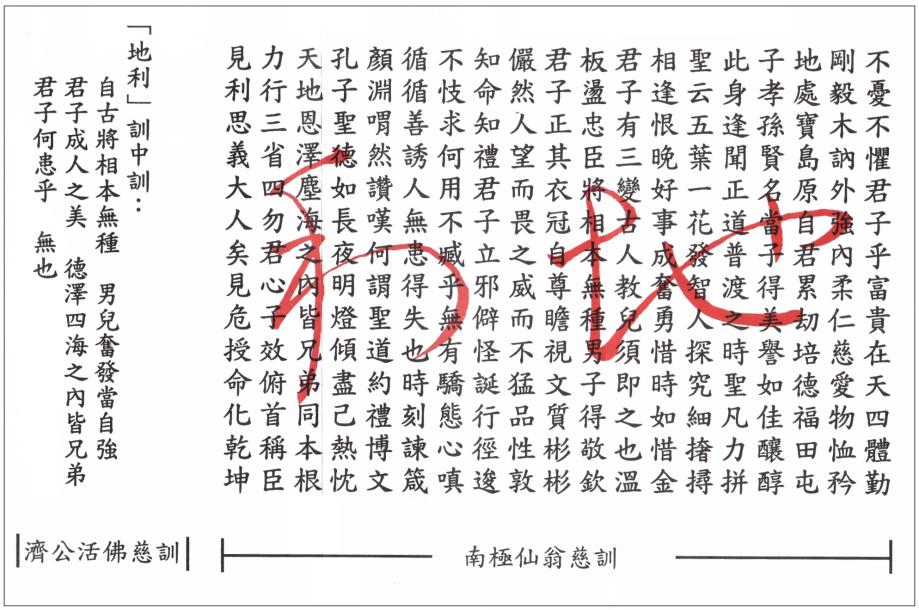 不憂不懼君子乎富貴在天四體勤
剛毅木訥外強內柔仁慈愛物恤矜
地處寶島原自君累劫培德福田屯
子孝孫賢名當子得美譽如佳釀醇
此身逢聞正道普渡之時聖凡力拼
聖云五葉一花發智人探究細撏
相逢恨晚好事成奮勇惜時如惜金
君子有三變古人教兒須即之也溫
板盪忠臣將相本無種男子得敬欽
君子正其衣冠自尊瞻視文質彬彬
儼然人望而畏之威而不猛品性敦
知命知禮君子立邪僻怪誕行徑逡
不忮求何用不臧乎無有驕態心嗔
循循善誘人無患得失也時刻諫箴
顏淵喟然讚嘆何謂聖道約禮博文
孔子聖德如長夜明燈傾盡己熱忱
天地恩澤塵海之內皆兄弟同本根
力行三省四勿君心子效俯首稱臣
見利思義大人矣見危授命化乾坤
地利
南極仙翁慈訓
「地利」訓中訓：
自古將相本無種　男兒奮發當自強
君子成人之美　德澤四海之內皆兄弟
君子何患乎　無也
濟公活佛慈訓